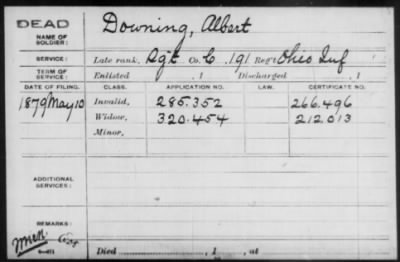 DEAD
NAME OF SOLDIER: Downing, Albert
SERVICE: Late rank, Sgt. Co. C, 191 Reg't Ohio Inf
TERM OF SERVICE: Enlisted , 1 Discharged , 1
DATE OF FILING. CLASS. APPLICATION NO. LAW. CERTIFICATE NO.
1879 May 10 Invalid, 285.352 266.496
Widow, 320.454 212.013
Minor,
ADDITIONAL SERVICES:
REMARKS:
Died , 1 , at